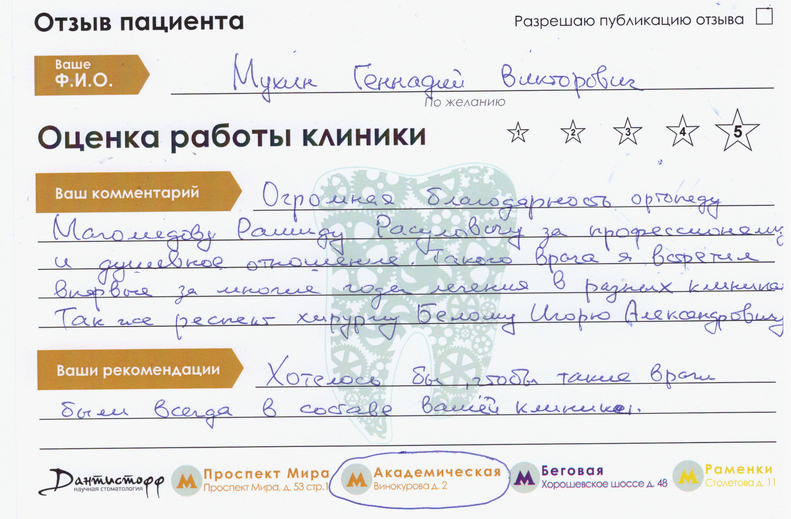 Отзыв пациента
Разрешаю публикацию отзыва
Ваше
Ф.И.О.
Мухин Геннадий Викторович
По желанию
Оценка работы клиники
1 2 3 4 5
Ваш комментарий
Огромная благодарность ортопеду
Магомедову Рашиду Расуловичу за профессионализм
и душевное отношение. Такого врача я встретил
впервые за многие года лечения в разных клиниках
Так же респект хирургу Белому Игорю Александровичу
Ваши рекомендации
Хотелось бы, чтобы такие врачи
были всегда в составе вашей клиники.
Дантистофф
научная стоматология
М Проспект Мира
Проспект Мира, д. 53 стр.1
М Академическая
Винокурова д. 2
М Беговая
Хорошевское шоссе д. 48
М Раменки
Столетова д. 11